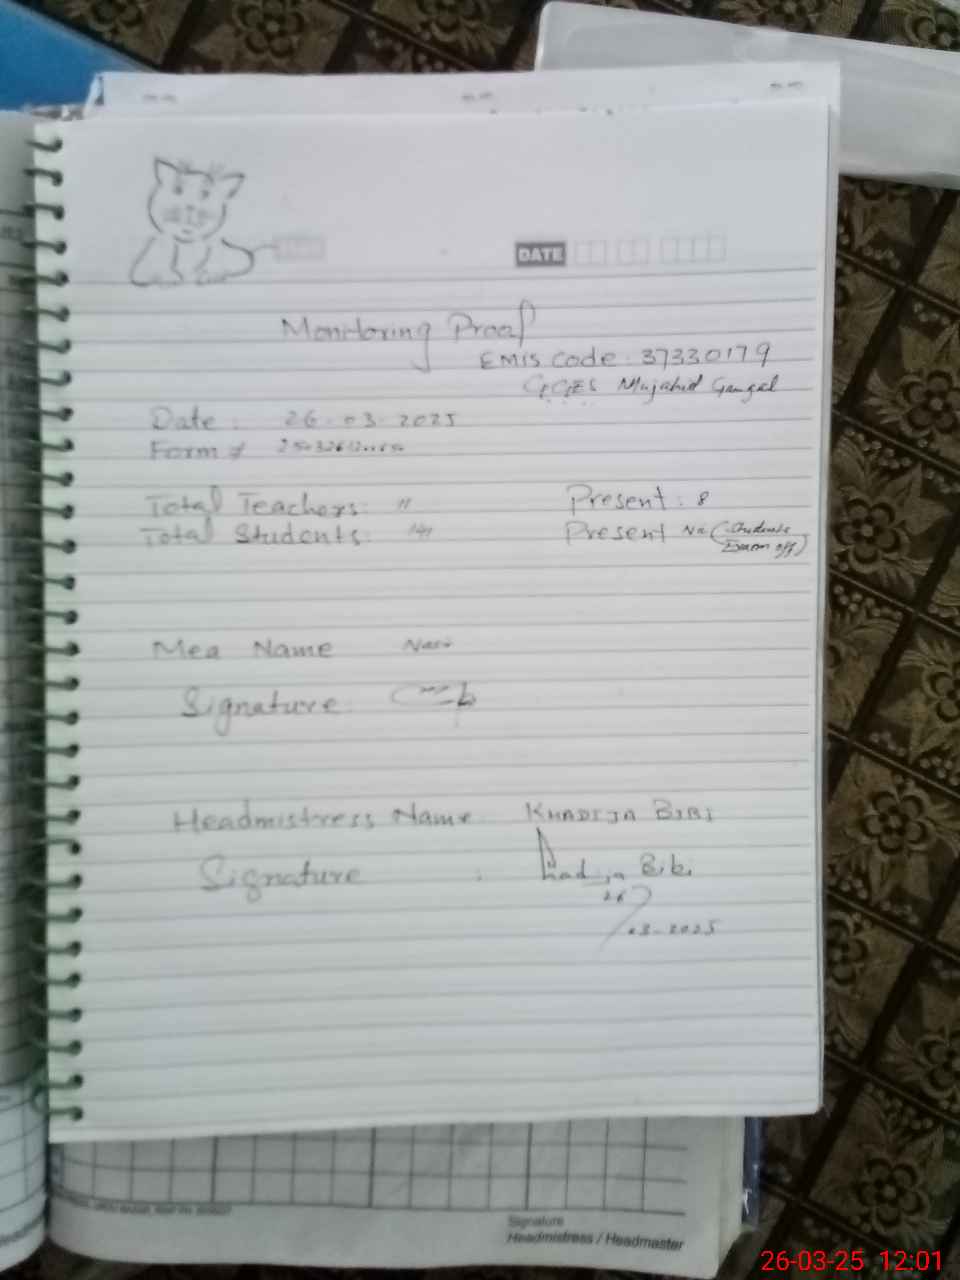 DATE
Monitoring Proof
EMIS Code : 37330179
GGES Mujahid Gangal
Date : 26.03.2025
Form #
Total Teachers: 11 Present : 8
Total Students: 141 Present No (Students Exam off)
Mea Name
Signature :
Headmistress Name KHADIJA BIBI
Signature : Khadija Bibi
26/03-2025
Signature
Headmistress / Headmaster
26-03-25 12:01